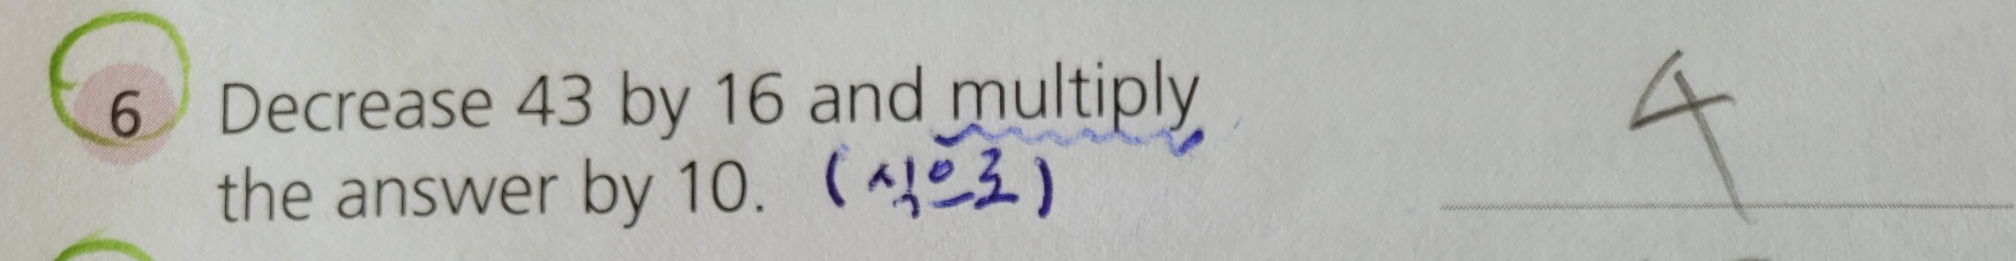 6 Decrease 43 by 16 and multiply
the answer by 10. (식으로)
4